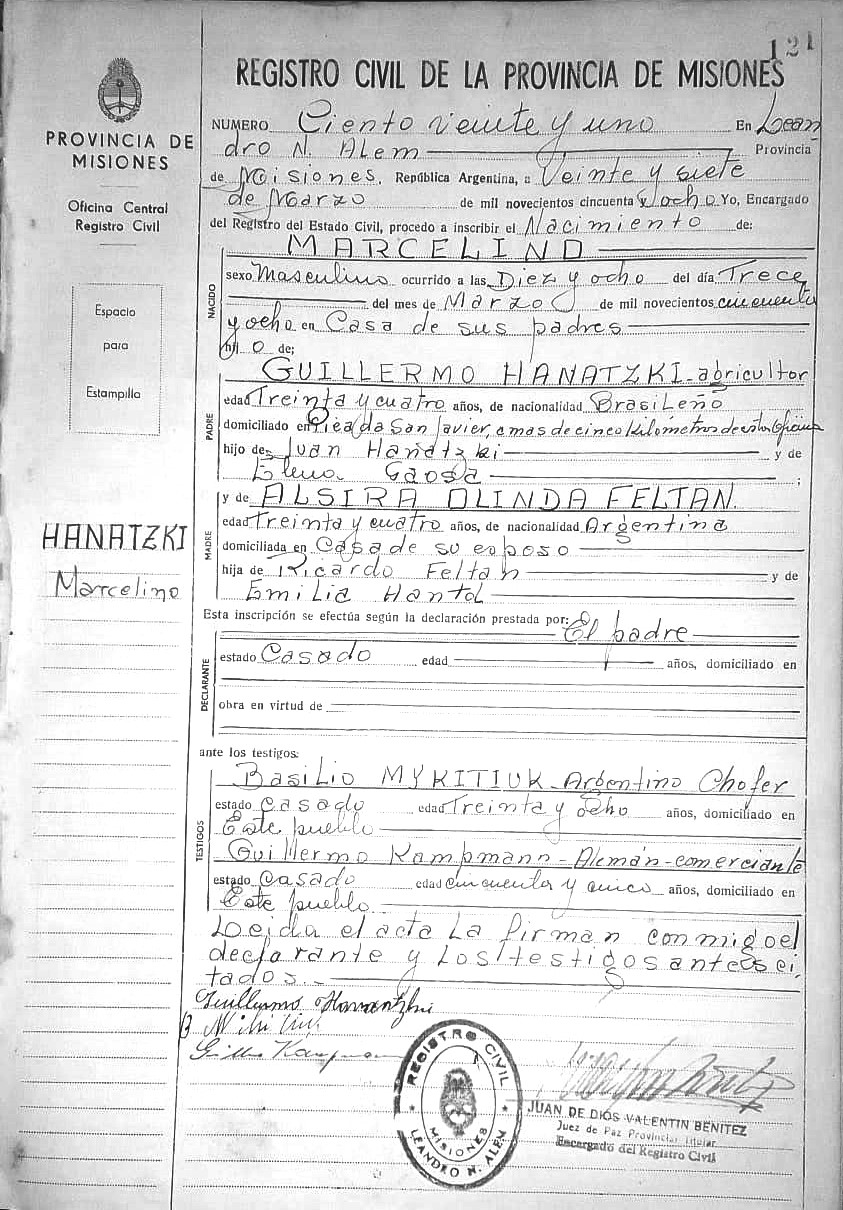 121
REGISTRO CIVIL DE LA PROVINCIA DE MISIONES
PROVINCIA DE
MISIONES
Oficina Central
Registro Civil
Espacio
para
Estampilla
HANATZKI
Marcelino
NUMERO Ciento veinte y uno En Lean
dro N. Alem Provincia
de Misiones, República Argentina, a Veinte y siete
de Marzo de mil novecientos cincuenta y ocho Yo, Encargado
del Registro del Estado Civil, procedo a inscribir el Nacimiento de:
NACIDO
MARCELINO
sexo Masculino ocurrido a las Diez y ocho del día Trece
del mes de Marzo de mil novecientos cincuenta
y ocho en Casa de sus padres
hijo de:
PADRE
GUILLERMO HANATZKI - agricultor
edad Treinta y cuatro años, de nacionalidad Brasileño
domiciliado en Picada San Javier, a mas de cinco kilometros de esta Oficina
hijo de Juan Hanatzki y de
Elena ;
MADRE
y de ALSIRA OLINDA FELTAN.
edad Treinta y cuatro años, de nacionalidad Argentina
domiciliada en Casa de su esposo
hija de Ricardo Feltan y de
Emilia
Esta inscripción se efectúa según la declaración prestada por: El padre
DECLARANTE
estado Casado edad años, domiciliado en
obra en virtud de
ante los testigos:
TESTIGOS
Basilio MYKITIUK - Argentino Chofer
estado casado edad Treinta y ocho años, domiciliado en
Este pueblo
Guillermo Kampmann - Alemán - comerciante
estado casado edad cincuenta y cinco años, domiciliado en
Este pueblo
Leida el acta la firman conmigo el
declarante y los testigos antes ci
tados.
Guillermo
REGISTRO CIVIL
MISIONES
LEANDRO N. ALEM
JUAN DE DIOS VALENTIN BENITEZ
Juez de Paz Provincial Titular
Encargado del Registro Civil